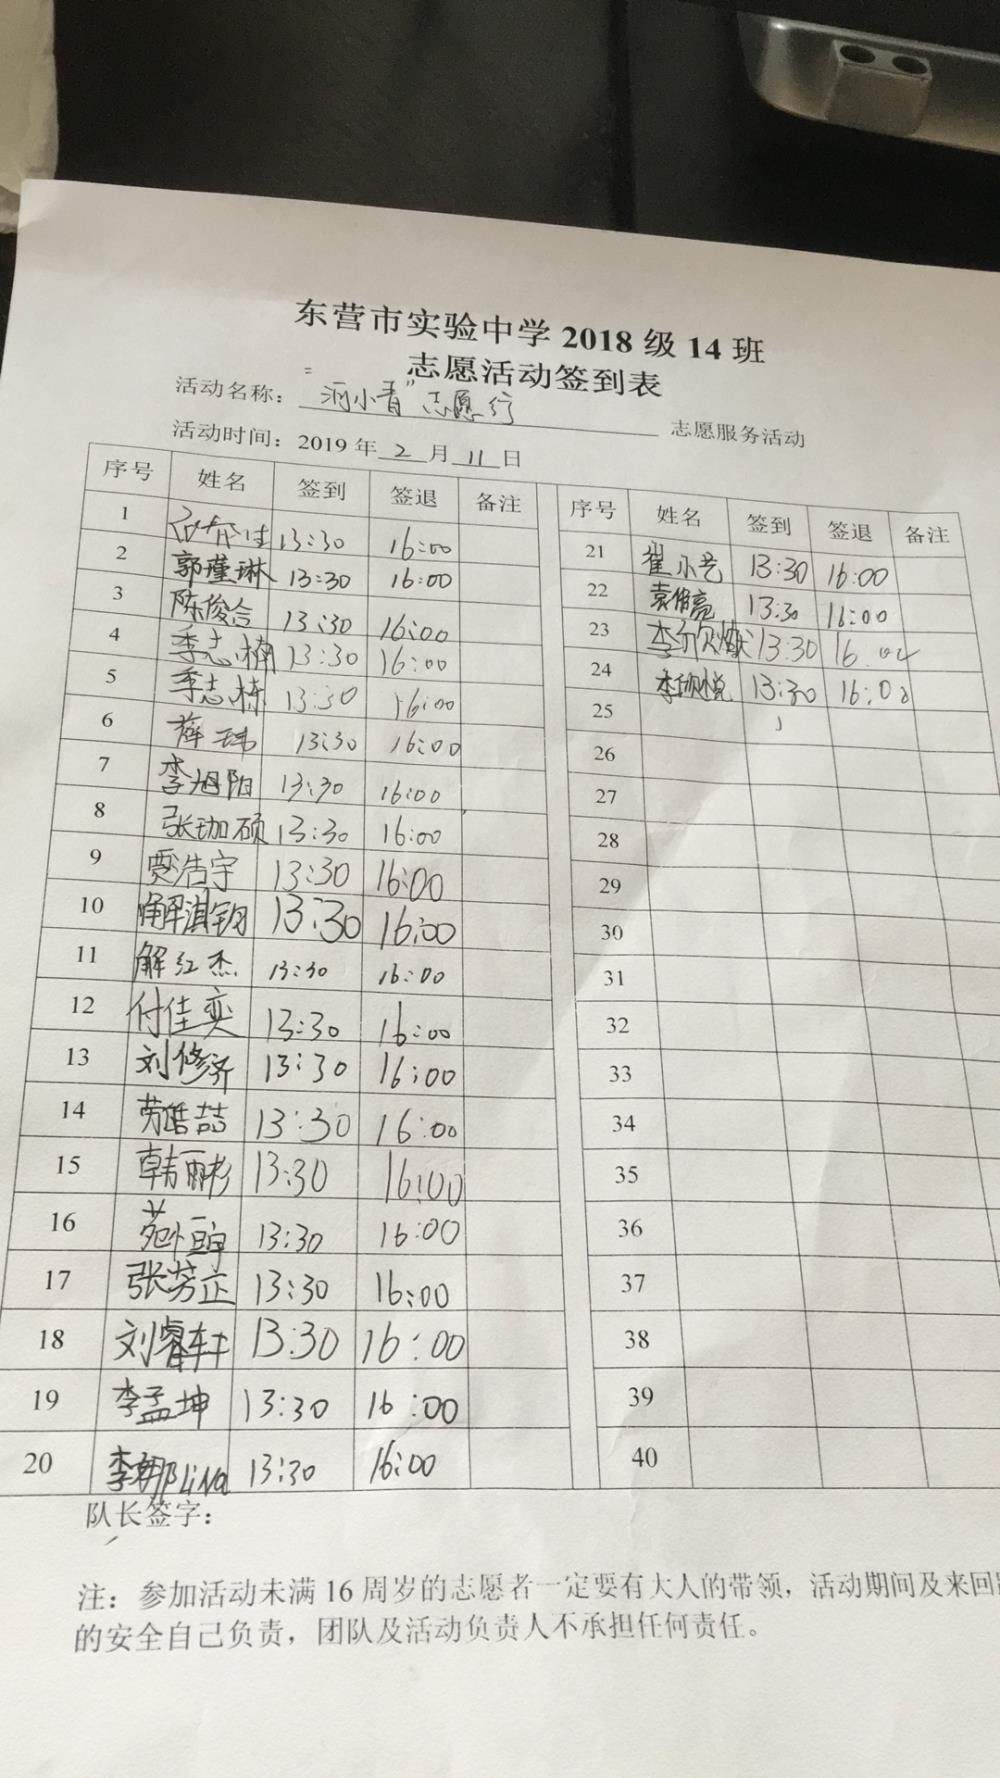 东营市实验中学 2018 级 14 班
志愿活动签到表
活动名称："河小青"志愿行 志愿服务活动
活动时间：2019 年 2 月 11 日
序号 姓名 签到 签退 备注
1 13:30 16:00
2 郭瑾琳 13:30 16:00
3 陈俊合 13:30 16:00
4 季志楠 13:30 16:00
5 季志栋 13:30 16:00
6 薛玮 13:30 16:00
7 李旭阳 13:30 16:00
8 张珈硕 13:30 16:00
9 贾浩宇 13:30 16:00
10 解淇钥 13:30 16:00
11 解红杰 13:30 16:00
12 付佳奕 13:30 16:00
13 刘修济 13:30 16:00
14 13:30 16:00
15 韩丽彬 13:30 16:00
16 13:30 16:00
17 张芳芷 13:30 16:00
18 刘睿轩 13:30 16:00
19 李孟坤 13:30 16:00
20 李娜 Lina 13:30 16:00
序号 姓名 签到 签退 备注
21 翟小艺 13:30 16:00
22 袁伟亮 13:30 16:00
23 13:30
24 李欣悦 13:30 16:00
25
26
27
28
29
30
31
32
33
34
35
36
37
38
39
40
队长签字：
注：参加活动未满 16 周岁的志愿者一定要有大人的带领，活动期间及来回
的安全自己负责，团队及活动负责人不承担任何责任。